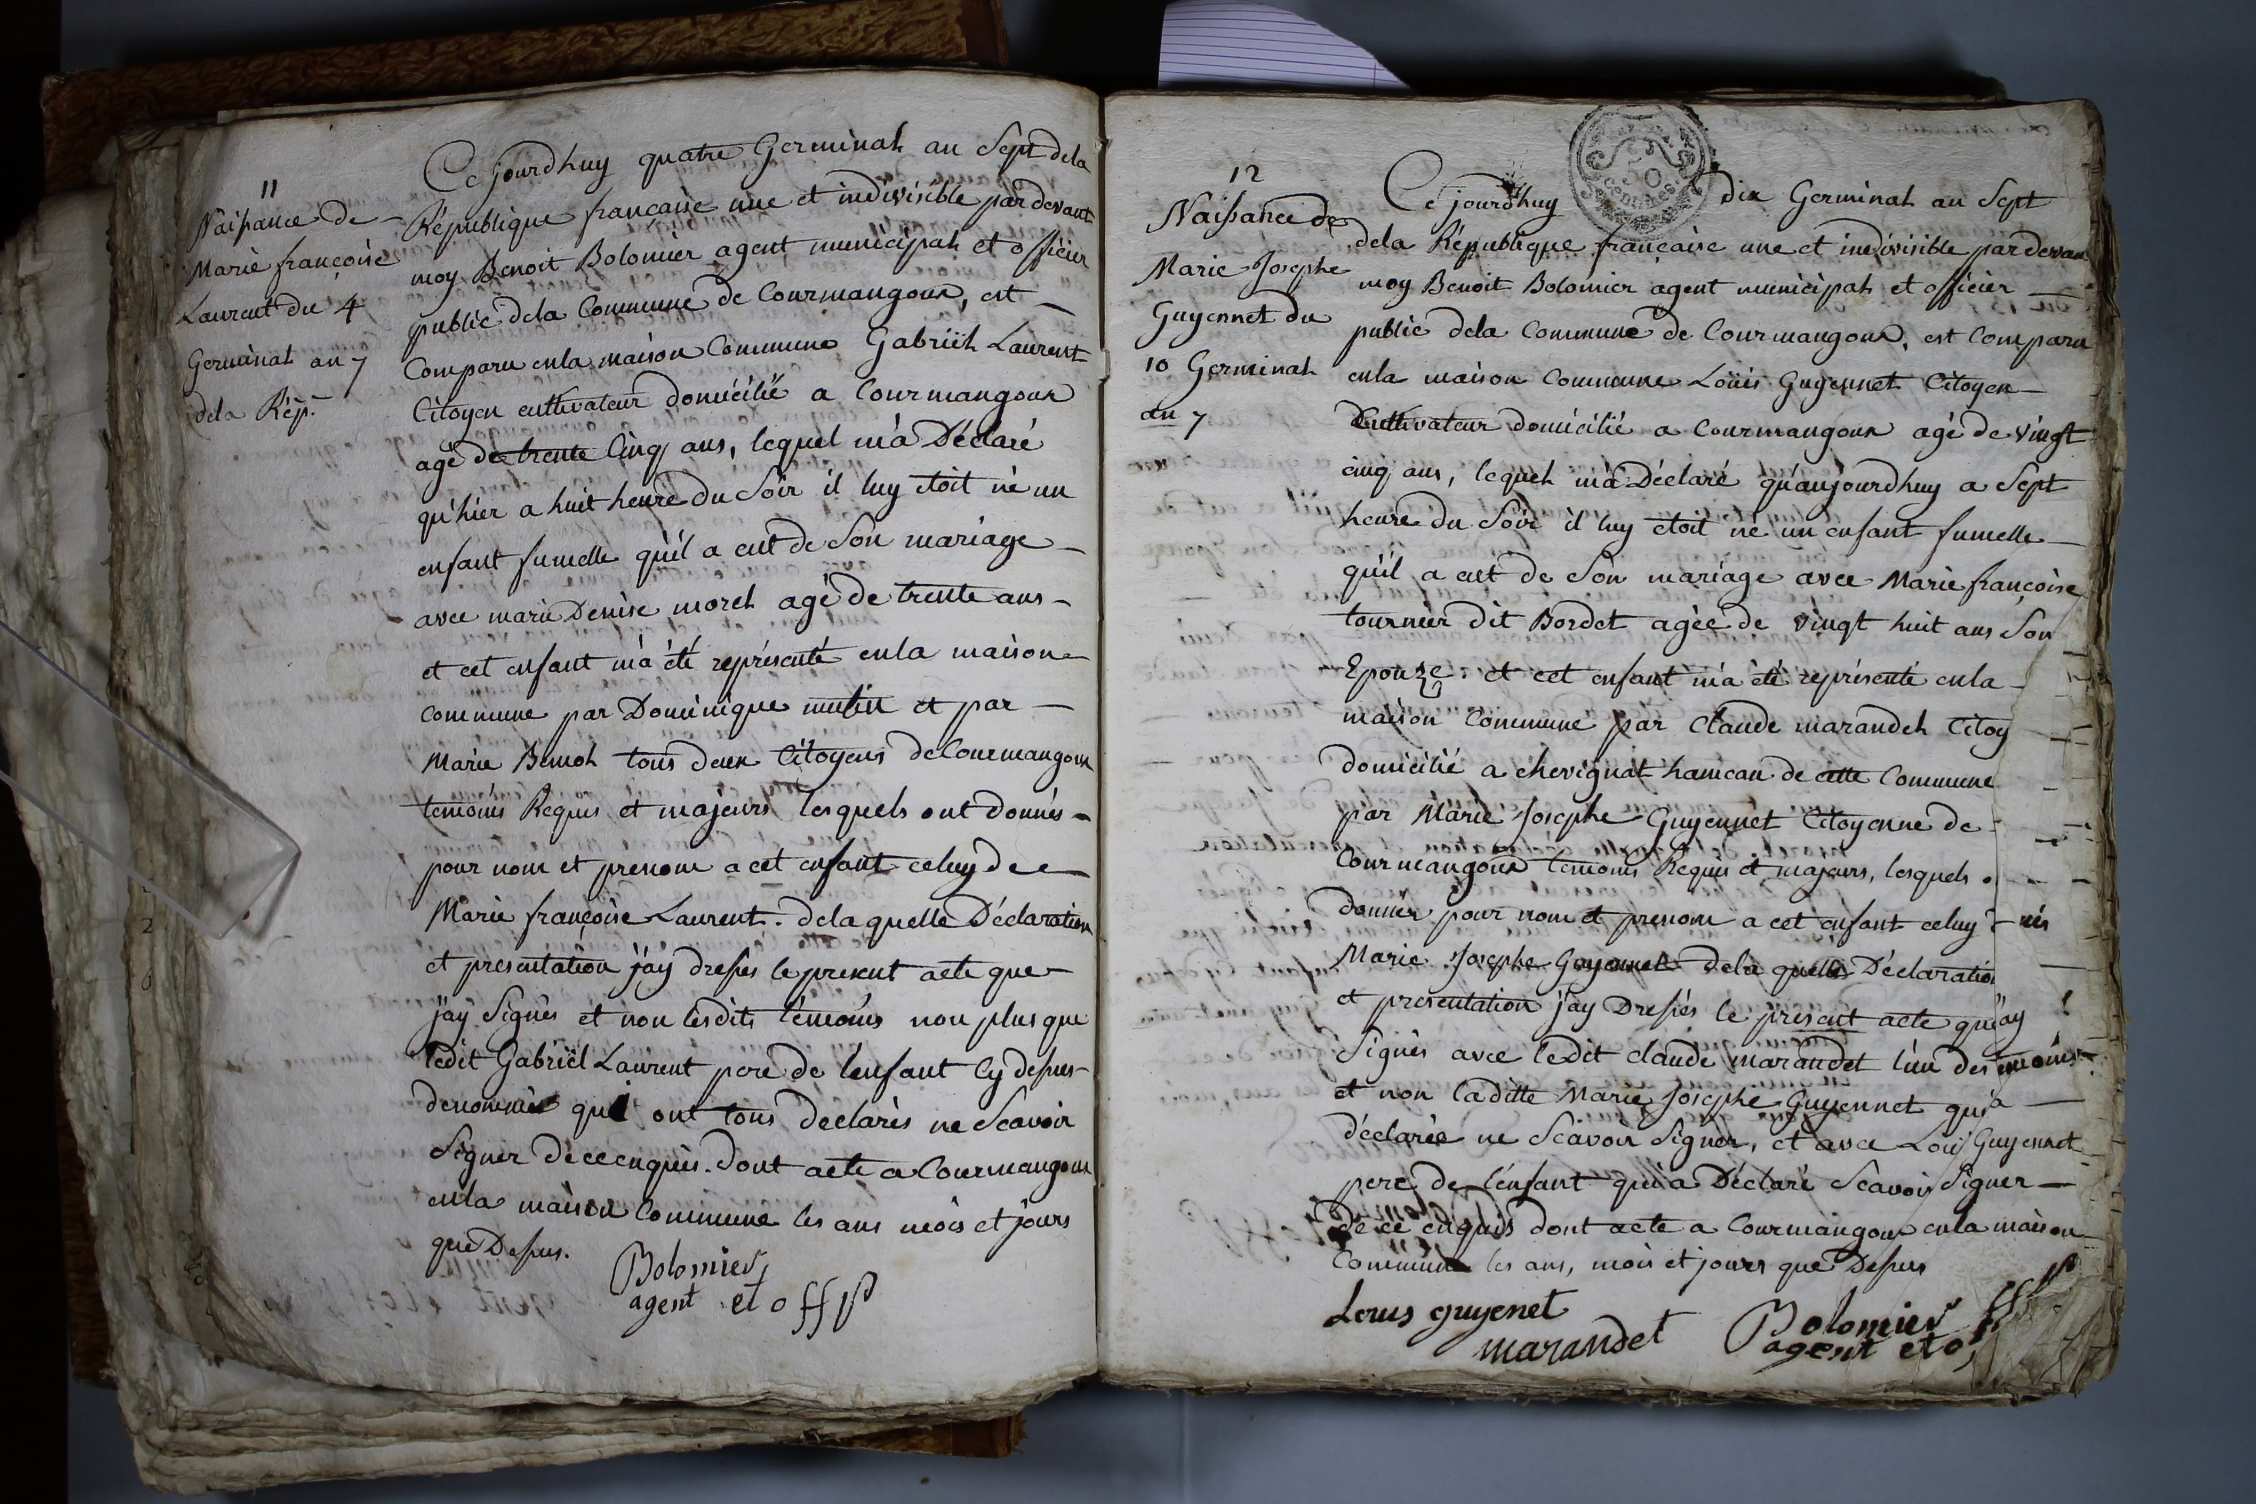 11
Naissance de
Marie françoise
Laurent du 4
Germinal an 7
dela Rép.
Ce jourdhuy quatre Germinal an Sept dela
République francaise une et indivisible par devant
moy Benoit Bolomier agent municipal et officier
public dela Commune de Courmangoux, est
Comparu enla maison Commune Gabriël Laurent
Citoyen cultivateur domicilié a Courmangoux
agé de trente Cinq ans, lequel m'a Déclaré
qu'hier a huit heure du Soir il luy etoit né un
enfant fumelle qu'il a eut de Son mariage
avec marie Denise morel agé de trente ans
et cet enfant m'a été représenté enla maison
commune par Dominique mulin et par
Marie tous deux Citoyens de Courmangoux
temoins Requis et majeurs lesquels ont donnés
pour nom et prenom a cet enfant celuy de
Marie françoise Laurent. dela quelle Déclaration
et presentation j'ay dressés le present acte que
j'ay Signés et non lesdits témoins non plus que
ledit Gabriël Laurent pere de l'enfant Cy dessus
denommés qui ont tous declarés ne Scavoir
Signer de ce enquis. dont acte a Courmangoux
enla maison Commune les ans mois et jours
que Dessus.
Bolomier
agent et off p
12
Naissance de
Marie Josephe
Guyennet du
10 Germinal
an 7
50
centimes
Ce jourdhuy dix Germinal an Sept
dela République française une et indivisible par devan
moy Benoit Bolomier agent municipal et officier
public dela Commune de Courmangoux, est Comparu
enla maison Commune Loüis Guyennet Citoyen
Cultivateur domicilié a Courmangoux agé de vingt
cinq ans, lequel m'a Déclaré qu'aujourdhuy a Sept
heure du Soir il luy etoit né un enfant fumelle
qu'il a eut de Son mariage avec Marie françoise
tournier dit Bordet agée de vingt huit ans Son
Epouze. et cet enfant m'a été représenté enla
maison Commune par Claude marandel Citoy
domicilié a chevignat hameau de cette Commune
par Marie Josephe Guyennet Citoyenne de
Courmangoux temoins Requis et majeurs, lesquels
donnés pour nom et prenom a cet enfant celuy
Marie Josephe Guyennet dela quelle Déclaratio
et presentation j'ay Dressés le present acte qu'jay
Signés avec ledit claude marandet l'un des moins
et non la ditte Marie Josephe Guyennet qui a
déclarée ne Scavoir Signer, et avec Loüis Guyennet
pere de l'enfant qui a Déclaré Scavoir Signer
de ce enquis dont acte a Courmangoux enla maison
Commune les ans, mois et jours que Dessus
Louis guyenet
marandet
Bolomier
agent et off